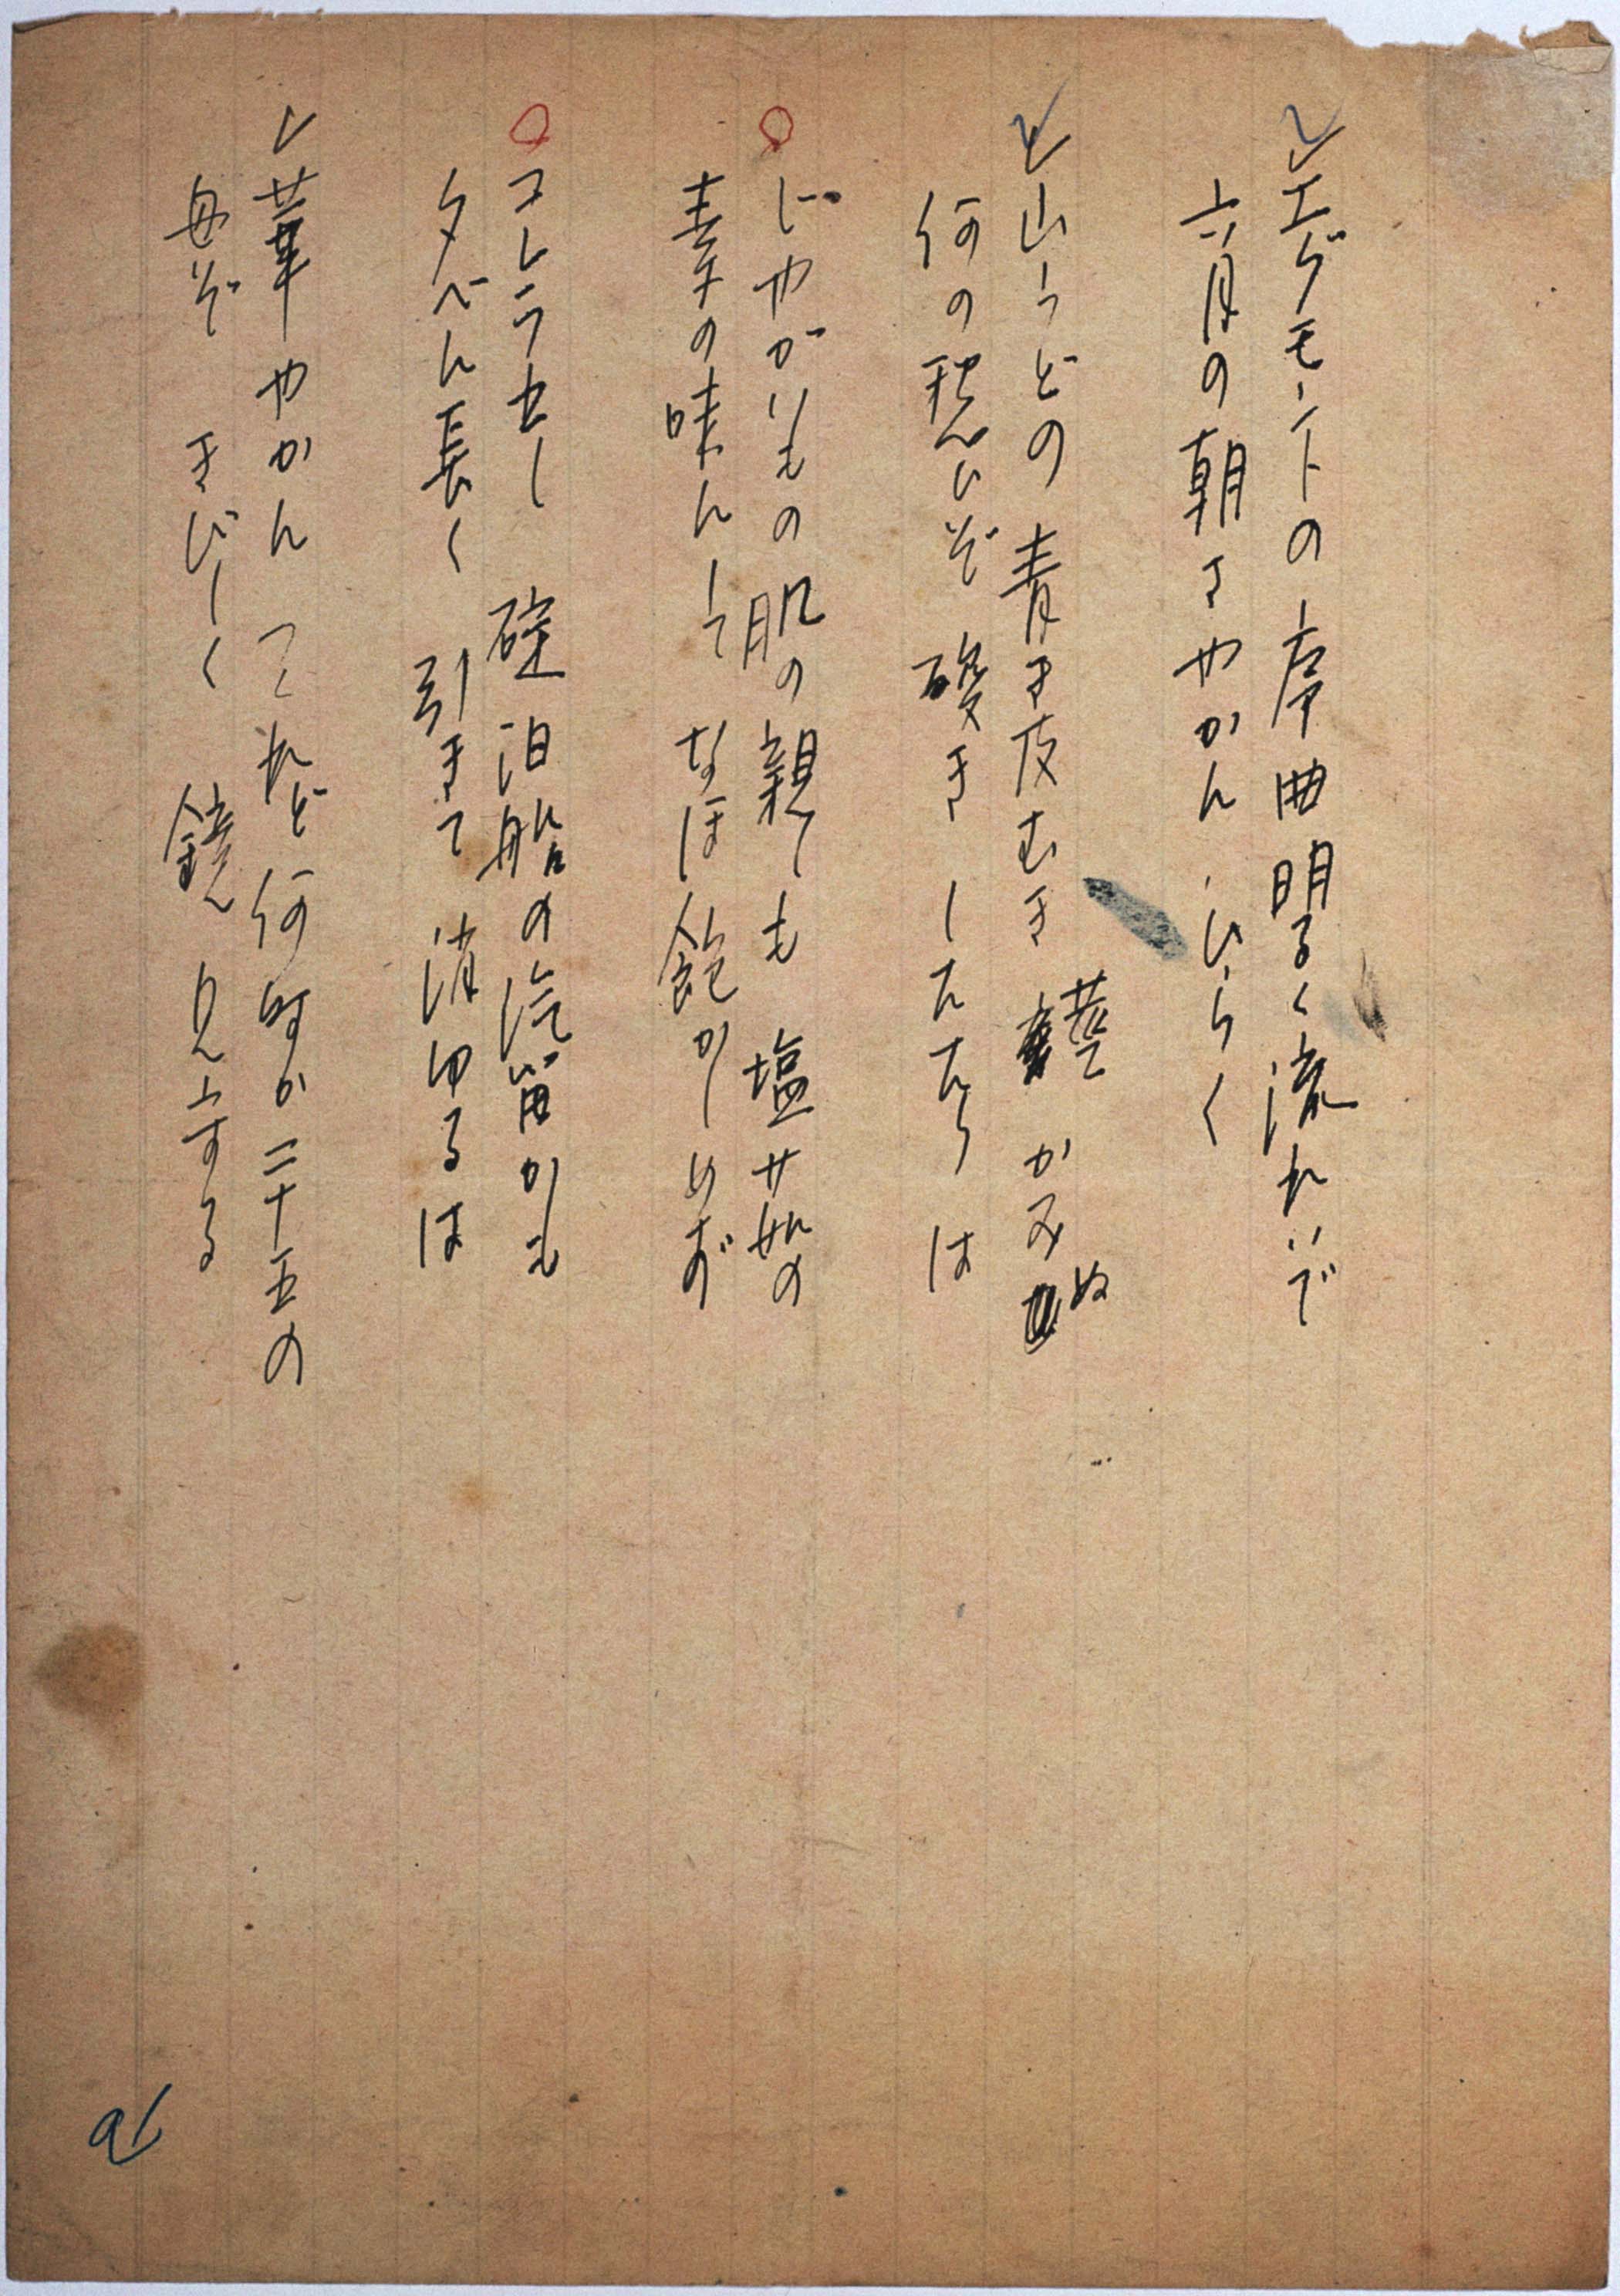 エグモントの序曲明るく流れいで
六月の朝さやかに ひらく
山うどの 青き皮むき 茎 かみぬ
何の ひぞ 酸き したたりは
じやがいもの 肌の親しも 塩茹の
味にして なほ飽かしめず
コレラ出し 碇泊船の汽笛かも
夕べに長く 引きて 消ゆるは
華やかに つくれど何時か二十五の
母ぞ きびしく 鏡
91